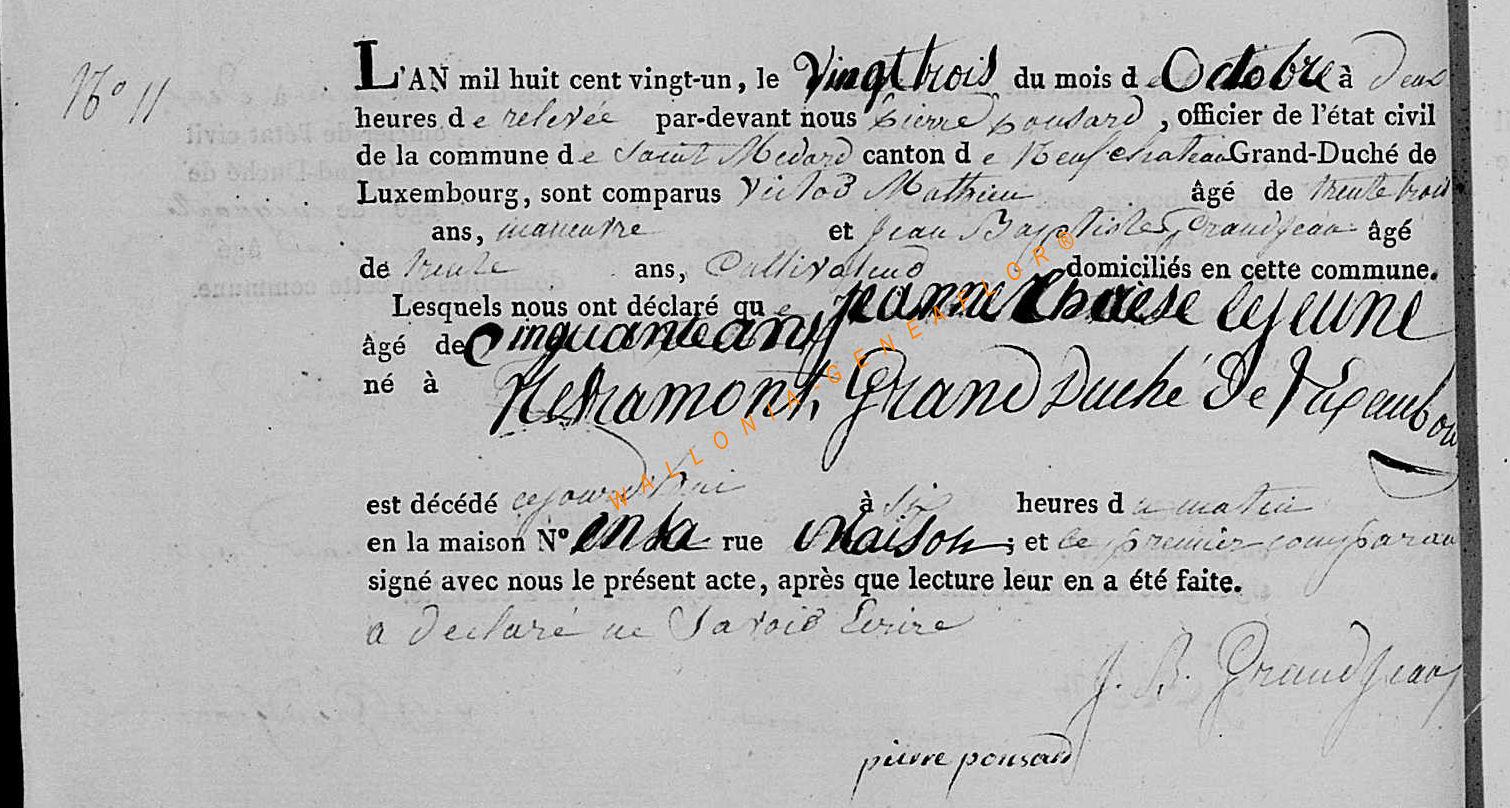 N° 11
L'AN mil huit cent vingt-un, le Vingt trois du mois de Octobre à deux
heures de relevée par-devant nous pierre pousard, officier de l'état civil
de la commune de Saint Medard canton de Neufchateau Grand-Duché de
Luxembourg, sont comparus Victor Mathieu âgé de trente trois
ans, maneuvre et Jean Baptiste Grandjean âgé
de trente ans, Cultivateur domiciliés en cette commune.
Lesquels nous ont déclaré que jeanne therese lejeune
âgé de Cinquante ans
né à Herramont, Grand Duché de Luxembour
est décédé cejourdhui à six heures du matin
en la maison N° en sa rue Maison ; et le premier comparan
signé avec nous le présent acte, après que lecture leur en a été faite.
a declaré ne savoir Ecrire
J. B. Grandjean
pierre pousard
WALLONIA-GENEAFLOR®